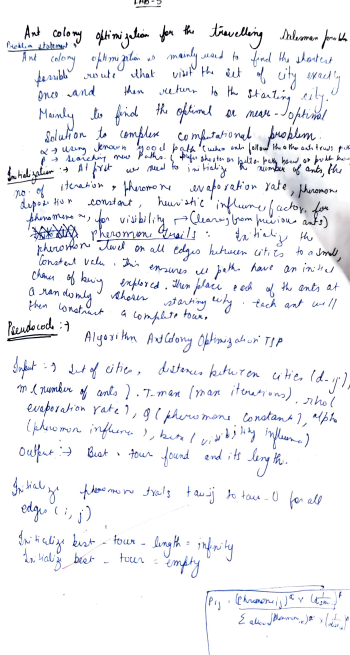 LAB-5
Ant colony optimization for the travelling Salesman problem
Problem statement:
Ant colony optimization is mainly used to find the shortest
possible route that visit the set of city exactly
once and then return to the starting city.
Mainly to find the optimal or near-optimal
solution to complex computational problem.
α → using known good path (when ants follow the other ants trails
β → searching new paths. (
Initialization → At first we need to initialize the number of ants, the
no. of iteration, pheromone evaporation rate, pheromone
deposition constant, heuristic influence factor, for
pheromone α, for visibility → (learning from previous ants)
pheromone trails: Initialize the
pheromone level on all edges between cities to a small,
constant value. This ensures all paths have an initial
chance of being explored. Then place each of the ants at
a randomly chosen starting city. Each ant will
then construct a complete tour.
Pseudocode :→
Algorithm AntColony Optimization TSP
Input :→ Set of cities, distances between cities (d-ij),
m (number of ants), T-max (max iterations), rho (
evaporation rate), Q (pheromone constant), alpha
(pheromon influence), beta (visibility influence)
Output :→ Best-tour found and its length.
Initialize pheromon trails tau-ij to tau-0 for all
edges (i, j)
Initialize best-tour-length = infinity
Initialize best-tour = empty